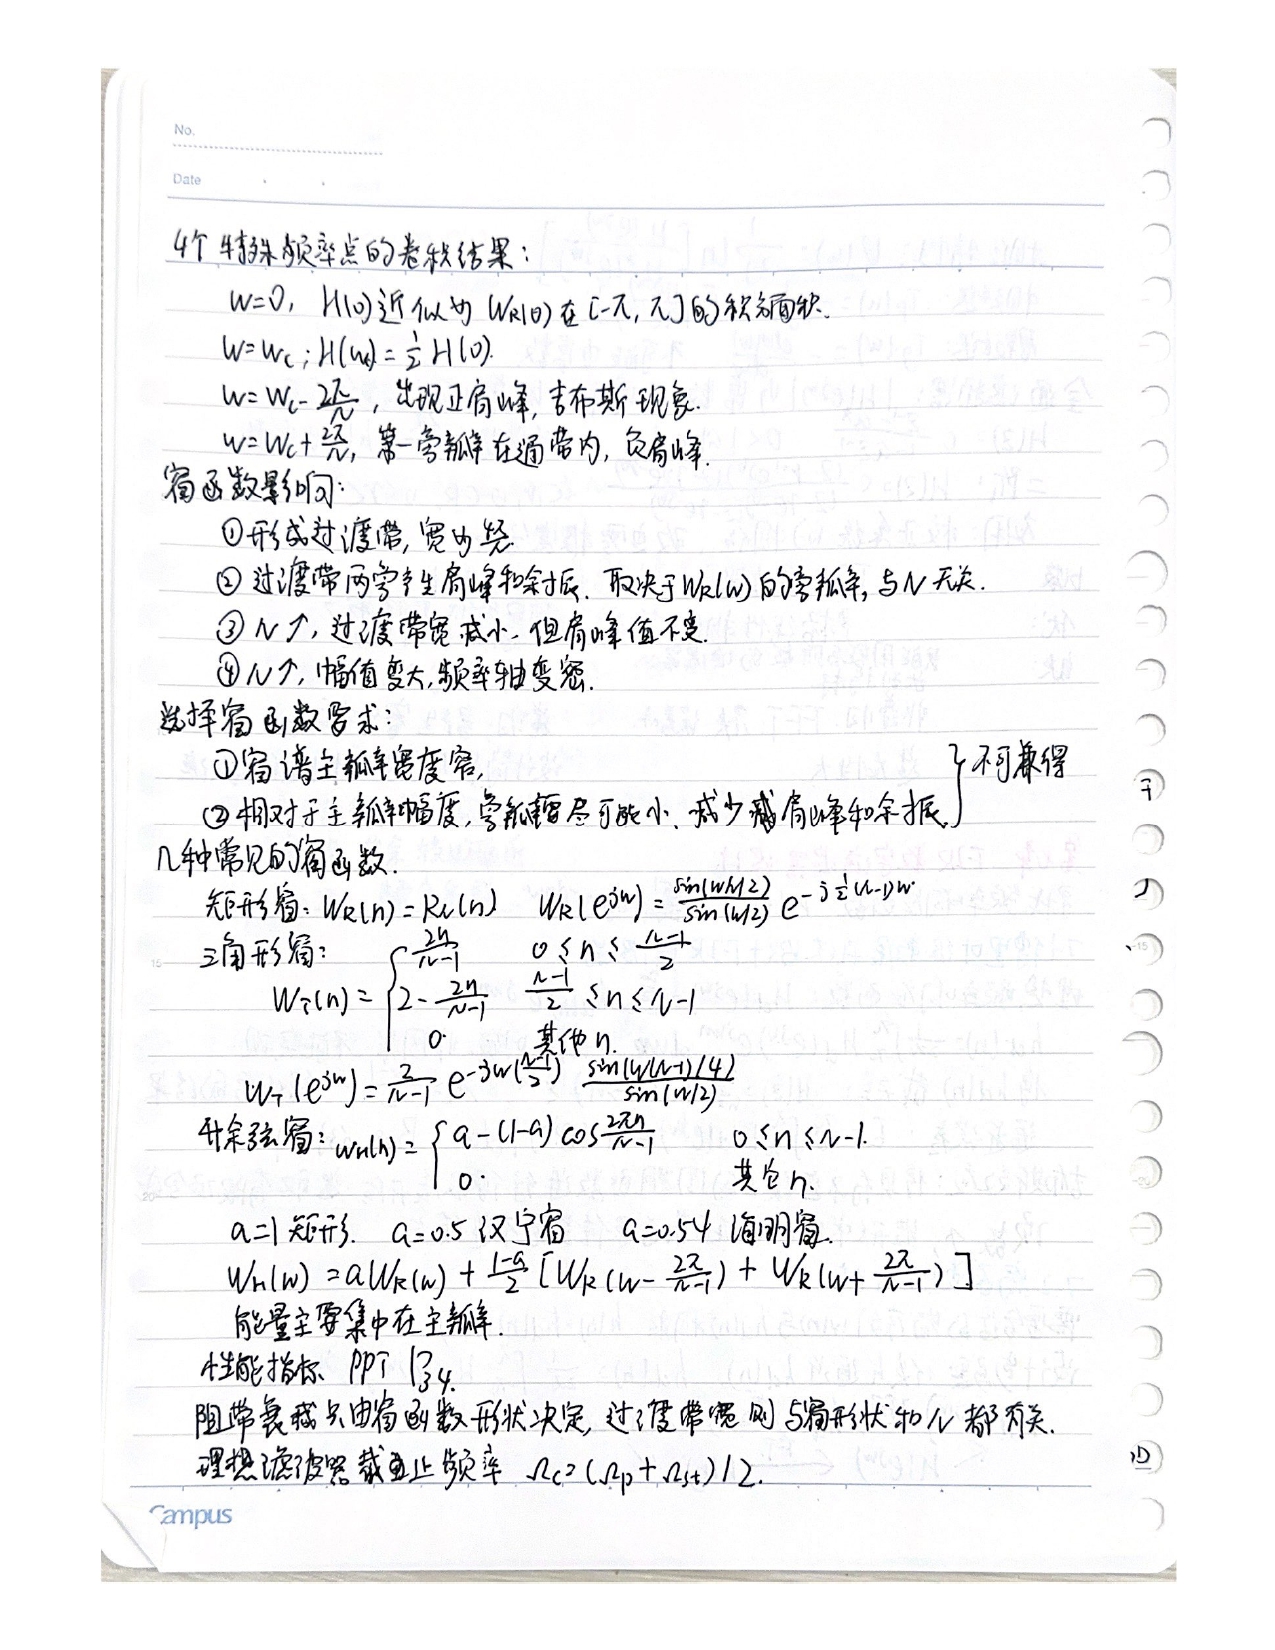 No.
Date
4个特殊频率点的卷积结果:
w=0, H(0)近似为 WR(θ)在[-π, π]的积分面积.
w=wc; H(wc)=1/2 H(0).
w=wc-2π/N, 出现正肩峰, 吉布斯现象.
w=wc+2π/N, 第一旁瓣在通带内, 负肩峰.
窗函数影响:
①形成过渡带, 宽为
②过渡带两旁产生肩峰和余振. 取决于WR(w)的旁瓣, 与N无关.
③N↑, 过渡带宽减小, 但肩峰值不变.
④N↑, 幅值变大, 频率轴变密.
选择窗函数要求:
①窗谱主瓣宽度窄,
②相对于主瓣幅度, 旁瓣尽可能小、减少肩峰和余振. } 不可兼得
几种常见的窗函数.
矩形窗: WR(n)=RN(n) WR(e^jw)=sin(wN/2)/sin(w/2) e^-j1/2(N-1)w
三角形窗:
WT(n)= { 2n/(N-1) 0≤n≤(N-1)/2
2-2n/(N-1) (N-1)/2≤n≤N-1
0. 其他n.
WT(e^jw)=2/(N-1) e^-jw((N-1)/2) sin(w(N-1)/4)/sin(w/2)
升余弦窗: WH(n)= { a-(1-a)cos 2πn/(N-1) 0≤n≤N-1.
0. 其它n.
a=1 矩形. a=0.5 汉宁窗 a=0.54 海明窗.
WH(w)=aWR(w)+(1-a)/2[WR(w-2π/(N-1))+WR(w+2π/(N-1))]
能量主要集中在主瓣.
性能指标 PPT P34.
阻带衰减只由窗函数形状决定, 过渡带宽则与窗形状和N都有关.
理想滤波器截止频率 Ωc=(Ωp+Ωst)/2.
Campus